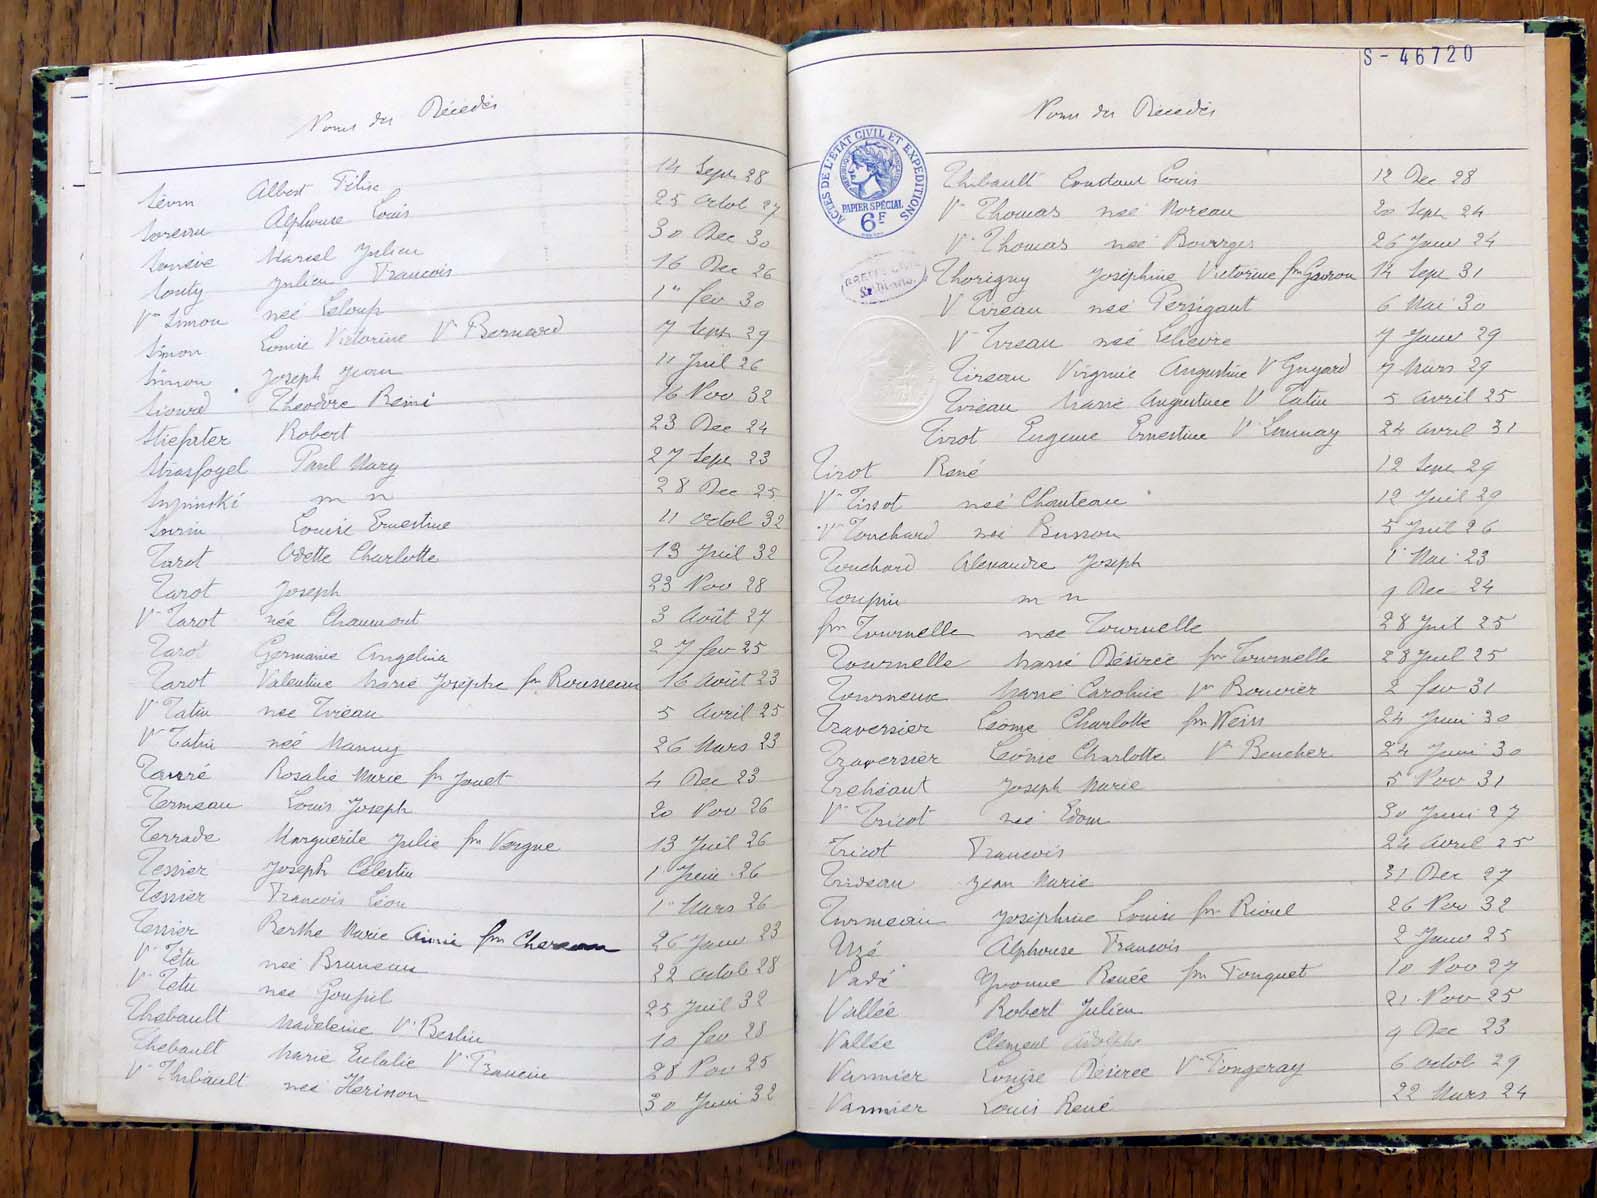 Noms des Décédés
Albert Félix 14 Sept 28
Alphonse Louis 25 Octob 27
Marcel Julien 30 Dec 30
Julien Francois 16 Dec 26
Vve Simon née Leloup 1er fev 30
Simon Louise Victorine Ve Bernard 7 Sept 29
Simon Joseph Jean 11 Juil 26
Theodore Remi 16 Nov 32
Robert 23 Dec 24
Strasfogel Paul Mary 27 Sept 23
m n 28 Dec 25
Louise Ernestine 11 octob 32
Tarot Odette Charlotte 13 Juil 32
Tarot Joseph 23 Nov 28
Ve Tarot née Chaumont 3 Août 27
Tarot Germaine Angelina 27 fev 25
Tarot Valentine Marie Josephe fm Rousseau 16 Août 23
Ve Tatin née Tireau 5 Avril 25
Ve Tatin née Nanny 26 Mars 23
Tauré Rosalie Marie fm Jouet 4 Dec 23
Termeau Louis Joseph 20 Nov 26
Terrade Marguerite Julie fm Vergne 13 Juil 26
Tessier Joseph Célestin 1 Juin 26
Tessier Francois Léon 1er Mars 26
Tessier Berthe Marie Aimée fm 26 Janv 23
Ve Tétu née Bruneau 22 octob 28
Ve Tetu née Goupil 25 Juil 32
Thebault Madeleine Ve Berlin 10 fev 28
Thebault Marie Eulalie Ve Francin 28 Nov 25
Ve Thibault née Herisson 30 Juin 32
S-46720
Noms des Décédés
ACTES DE L'ÉTAT CIVIL ET EXPÉDITIONS
PAPIER SPÉCIAL
6F
Thibault Constant Louis 12 Dec 28
Ve Thomas née Moreau 20 Sept 24
Ve Thomas née Bourges 26 Janv 24
Thorigny Joséphine Victorine fm Gavron 14 Sept 31
V Tireau née Persigant 6 Mai 30
Ve Tireau née Lelievre 7 Janv 29
Tireau Virginie Augustine V Guyard 7 Mars 29
Tireau Marie Augustine V Tatin 5 Avril 25
Tirot Eugenie Ernestine Ve Launay 24 avril 31
Tirot René 12 Sept 29
Ve Tissot née Chanteau 12 Juil 29
Ve Touchard née Busson 5 Juil 26
Touchard Alexandre Joseph 1 Mai 23
Toupin m n 9 Dec 24
fm Tournelle née Tournelle 28 Juil 25
Tournelle Marie Désirée fm Tournelle 28 Juil 25
Tourneux Marie Caroline Ve Bouvier 2 fev 31
Traversier Léonie Charlotte fm Weiss 24 Juin 30
Traversier Léonie Charlotte Ve Beucher 24 Juin 30
Trehéaut Joseph Marie 5 Nov 31
Ve Tricot née Edom 30 Juin 27
Tricot Francois 24 Avril 25
Trideau Jean Marie 31 Dec 27
Turmeau Joséphine Louise fm Rioul 26 Nov 32
Uzé Alphonse Francois 2 Janv 25
Vadé Yvonne Renée fm Fouquet 10 Nov 27
Vallée Robert Julien 21 Nov 25
Vallée Clement Adolphe 9 Dec 23
Vannier Louise Désirée Ve Fongeray 6 octob 29
Vannier Louis René 22 Mars 24